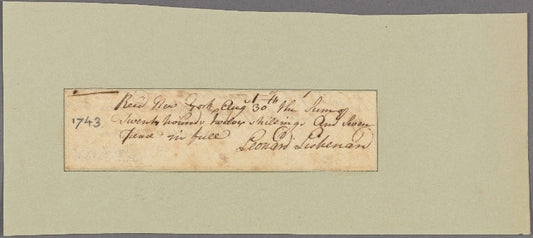 Recd New York Augt 30th the Sum of
1743
Twenty pounds twelve Shillings and Seven
pence in full
Leonard